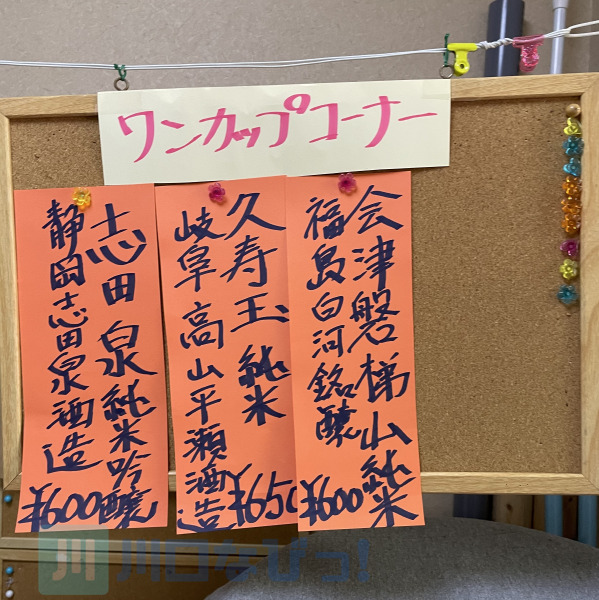 ワンカップコーナー
会津磐梯山純米
福島白河銘醸
¥600
久寿玉純米
岐阜高山平瀬酒造
¥650
志田泉純米吟醸
静岡志田泉酒造
¥600
川口なびっ!